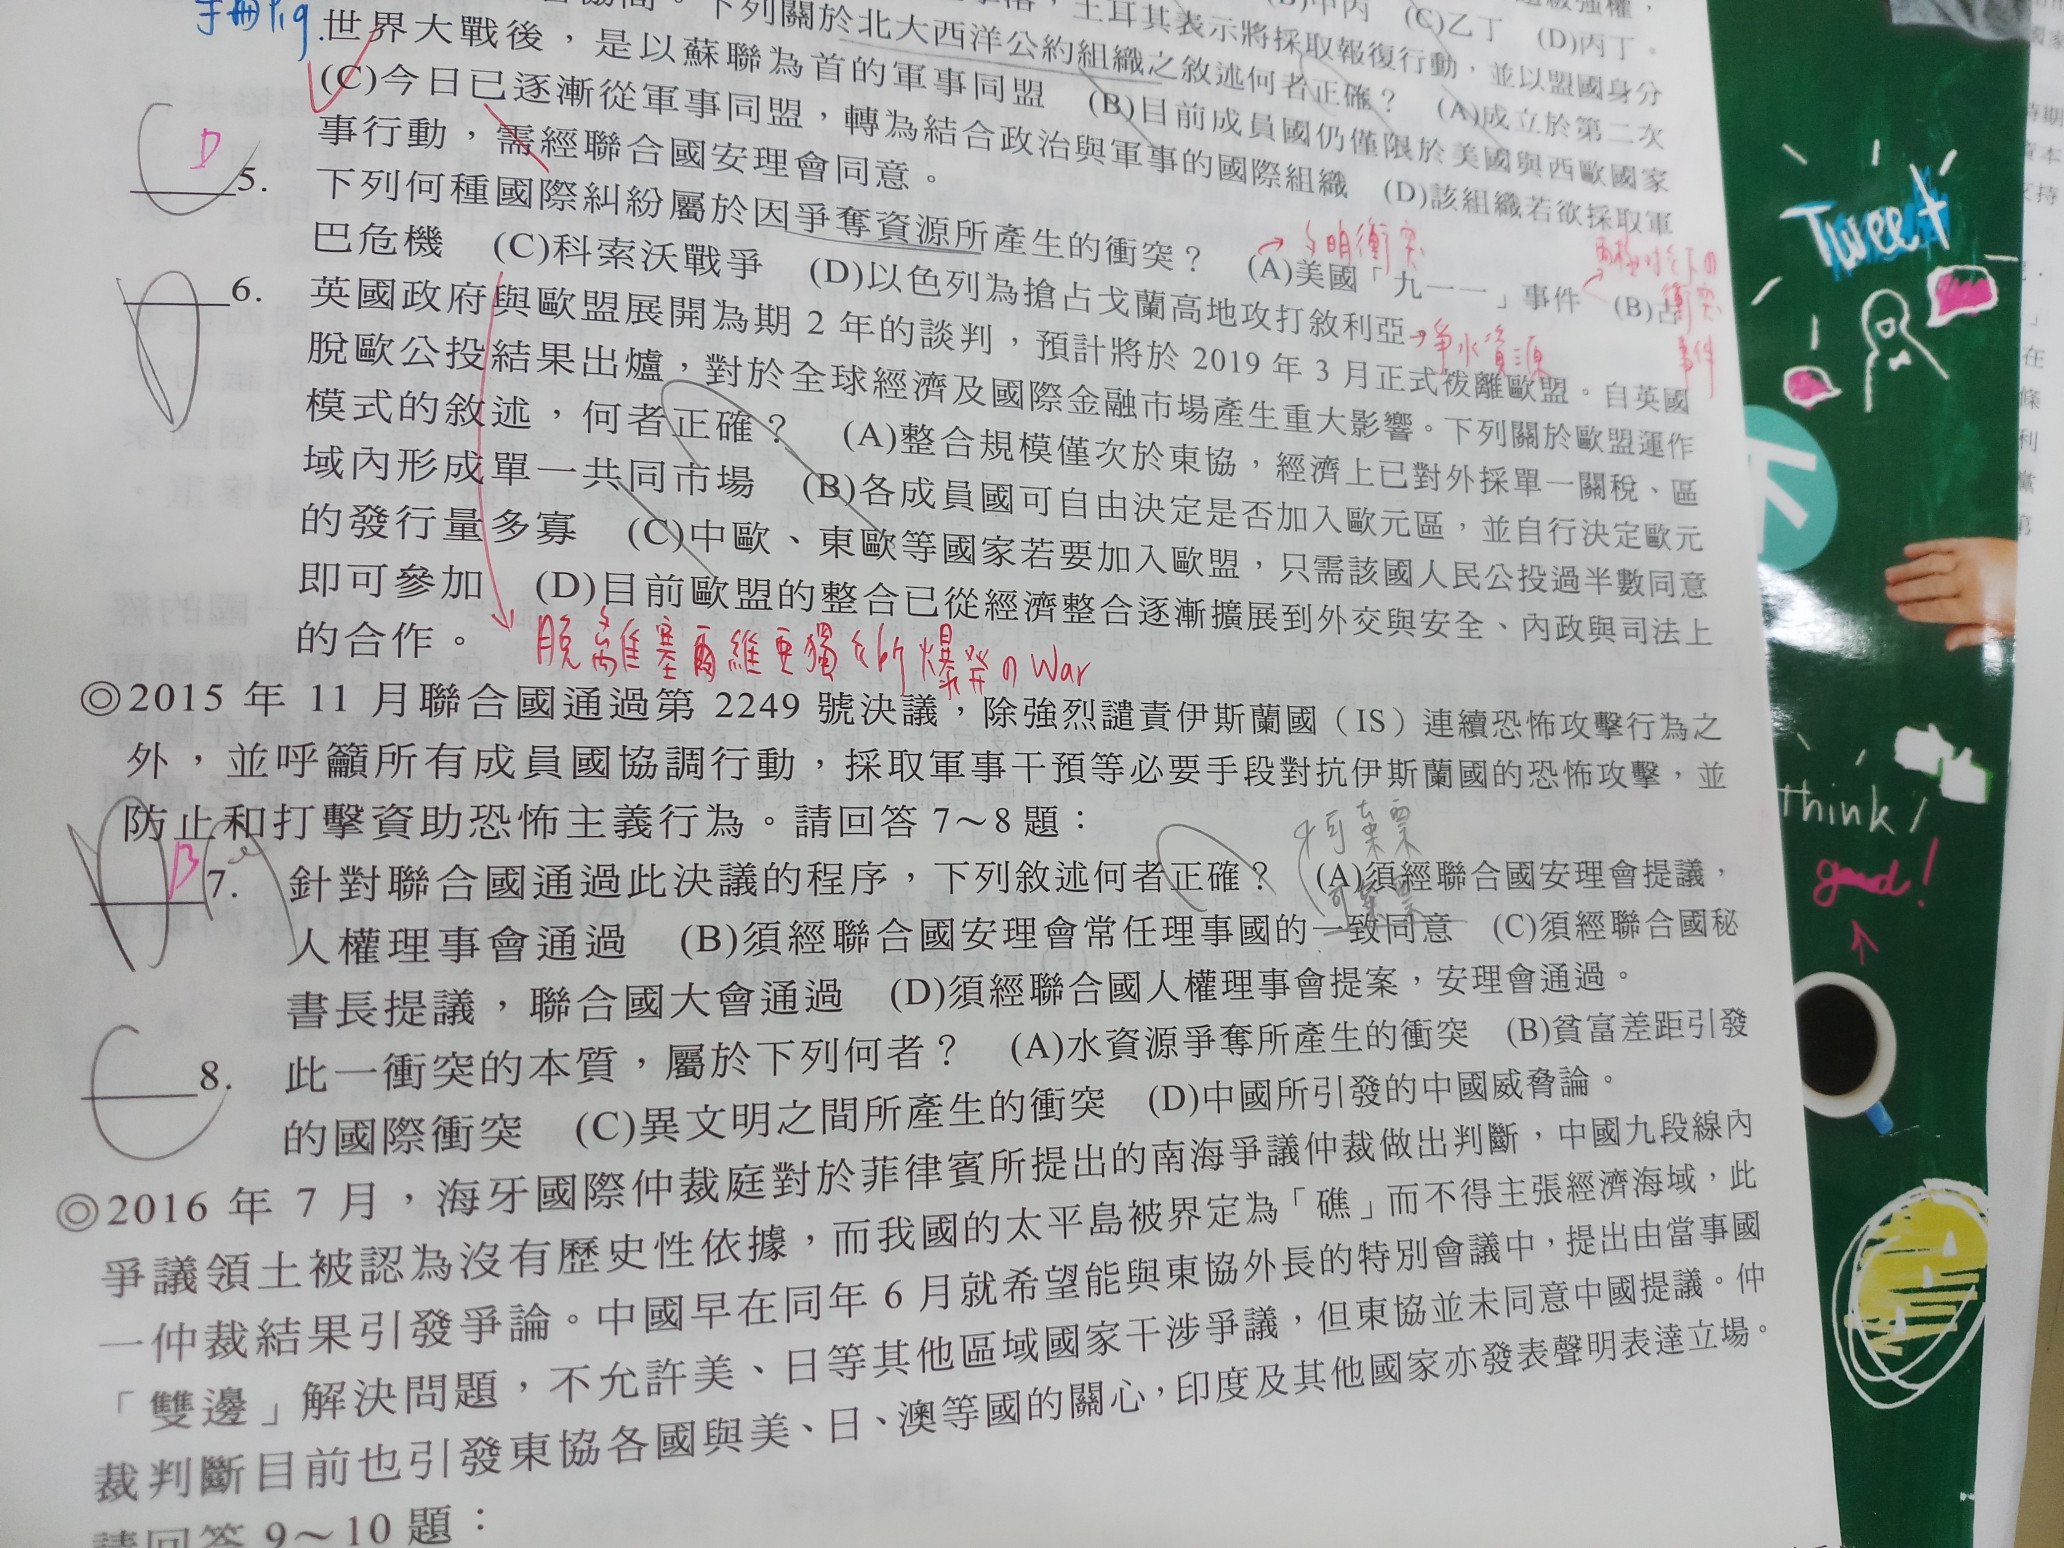 手冊 P.19
協商。下列關於北大西洋公約組織之敘述何者正確？ (A)成立於第二次
土耳其表示將採取報復行動，並以盟國身分
(B)甲丙 (C)乙丁 (D)丙丁。
世界大戰後，是以蘇聯為首的軍事同盟 (B)目前成員國仍僅限於美國與西歐國家
(C)今日已逐漸從軍事同盟，轉為結合政治與軍事的國際組織 (D)該組織若欲採取軍
事行動，需經聯合國安理會同意。
D 5. 下列何種國際糾紛屬於因爭奪資源所產生的衝突？ (A)美國「九一一」事件 (B)古
文明衝突
衝突
事件
巴危機 (C)科索沃戰爭 (D)以色列為搶占戈蘭高地攻打敘利亞→爭水資源
D 6. 英國政府與歐盟展開為期 2 年的談判，預計將於 2019 年 3 月正式祓離歐盟。自英國
脫歐公投結果出爐，對於全球經濟及國際金融市場產生重大影響。下列關於歐盟運作
模式的敘述，何者正確？ (A)整合規模僅次於東協，經濟上已對外採單一關稅、區
域內形成單一共同市場 (B)各成員國可自由決定是否加入歐元區，並自行決定歐元
的發行量多寡 (C)中歐、東歐等國家若要加入歐盟，只需該國人民公投過半數同意
即可參加 (D)目前歐盟的整合已從經濟整合逐漸擴展到外交與安全、內政與司法上
的合作。
脫離塞爾維亞獨立所爆發のWar
◎2015 年 11 月聯合國通過第 2249 號決議，除強烈譴責伊斯蘭國（IS）連續恐怖攻擊行為之
外，並呼籲所有成員國協調行動，採取軍事干預等必要手段對抗伊斯蘭國的恐怖攻擊，並
防止和打擊資助恐怖主義行為。請回答 7～8 題：
可棄票
B 7. 針對聯合國通過此決議的程序，下列敘述何者正確？ (A)須經聯合國安理會提議，
人權理事會通過 (B)須經聯合國安理會常任理事國的一致同意 (C)須經聯合國秘
書長提議，聯合國大會通過 (D)須經聯合國人權理事會提案，安理會通過。
C 8. 此一衝突的本質，屬於下列何者？ (A)水資源爭奪所產生的衝突 (B)貧富差距引發
的國際衝突 (C)異文明之間所產生的衝突 (D)中國所引發的中國威脅論。
◎2016 年 7 月，海牙國際仲裁庭對於菲律賓所提出的南海爭議仲裁做出判斷，中國九段線內
爭議領土被認為沒有歷史性依據，而我國的太平島被界定為「礁」而不得主張經濟海域，此
一仲裁結果引發爭論。中國早在同年 6 月就希望能與東協外長的特別會議中，提出由當事國
「雙邊」解決問題，不允許美、日等其他區域國家干涉爭議，但東協並未同意中國提議。仲
裁判斷目前也引發東協各國與美、日、澳等國的關心，印度及其他國家亦發表聲明表達立場。
請回答 9～10 題：
Tweet
think!
good!